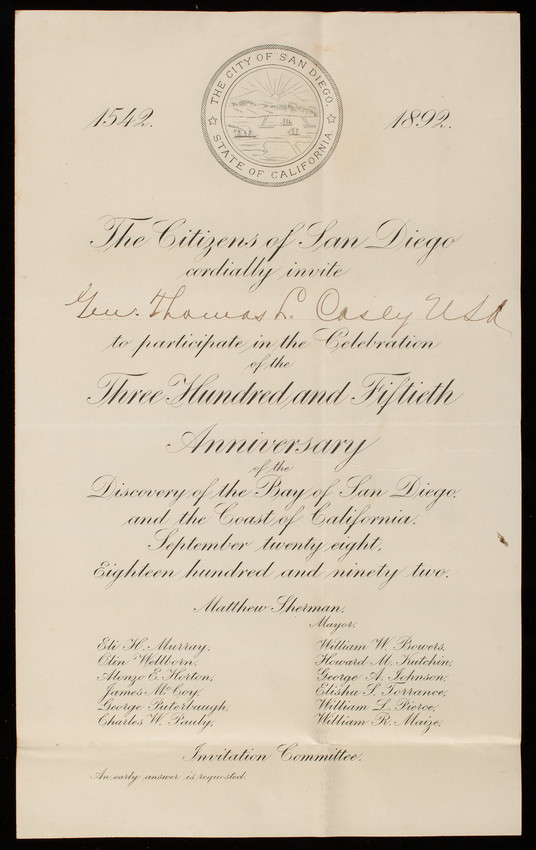 THE CITY OF SAN DIEGO,
STATE OF CALIFORNIA.
1542. 1892.
The Citizens of San Diego
cordially invite
Gen. Thomas L. Casey USA
to participate in the Celebration
of the
Three Hundred and Fiftieth
Anniversary
of the
Discovery of the Bay of San Diego,
and the Coast of California.
September twenty eight,
Eighteen hundred and ninety two.
Matthew Sherman,
Mayor.
Eli H. Murray,
Olin Wellborn,
Alonzo E. Horton,
James McCoy,
George Puterbaugh,
Charles W. Pauly,
William W. Bowers,
Howard M. Kutchin,
George A. Johnson,
Elisha S. Torrance,
William L. Pierce,
William R. Maize,
Invitation Committee.
An early answer is requested.